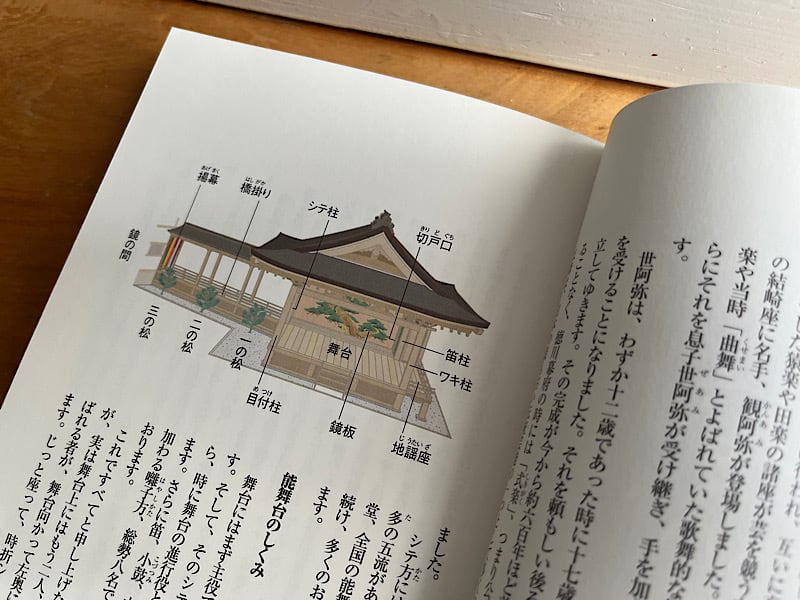 の結崎座に名手、観阿弥が登場しました。
楽や当時「曲舞」とよばれていた歌舞的な
らにそれを息子世阿弥が受け継ぎ、手を加
す。
世阿弥は、わずか十二歳であった時に十七歳
を受けることになりました。それを頼もしい後
立してゆきます。その完成が今から約六百年ほど
ることなく、徳川幕府の時には「式楽」、つまり
揚幕
橋掛り
シテ柱
切戸口
鏡の間
三の松
二の松
一の松
目付柱
舞台
鏡板
笛柱
ワキ柱
地謡座
ました。
シテ方には
多の五流があ
堂、全国の能
続け、多くのお
ます。
能舞台のしくみ
舞台にはまず主役
す。そして、そのシテ
ら、時に舞台の進行役
ます。さらに笛、小鼓、
加わる囃子方、
総勢八名で
おります。
これですべてと申し上げた
が、実は舞台上にはもう二人、
ばれる者が、舞台向かって左奥に
ます。じっと座って、時折